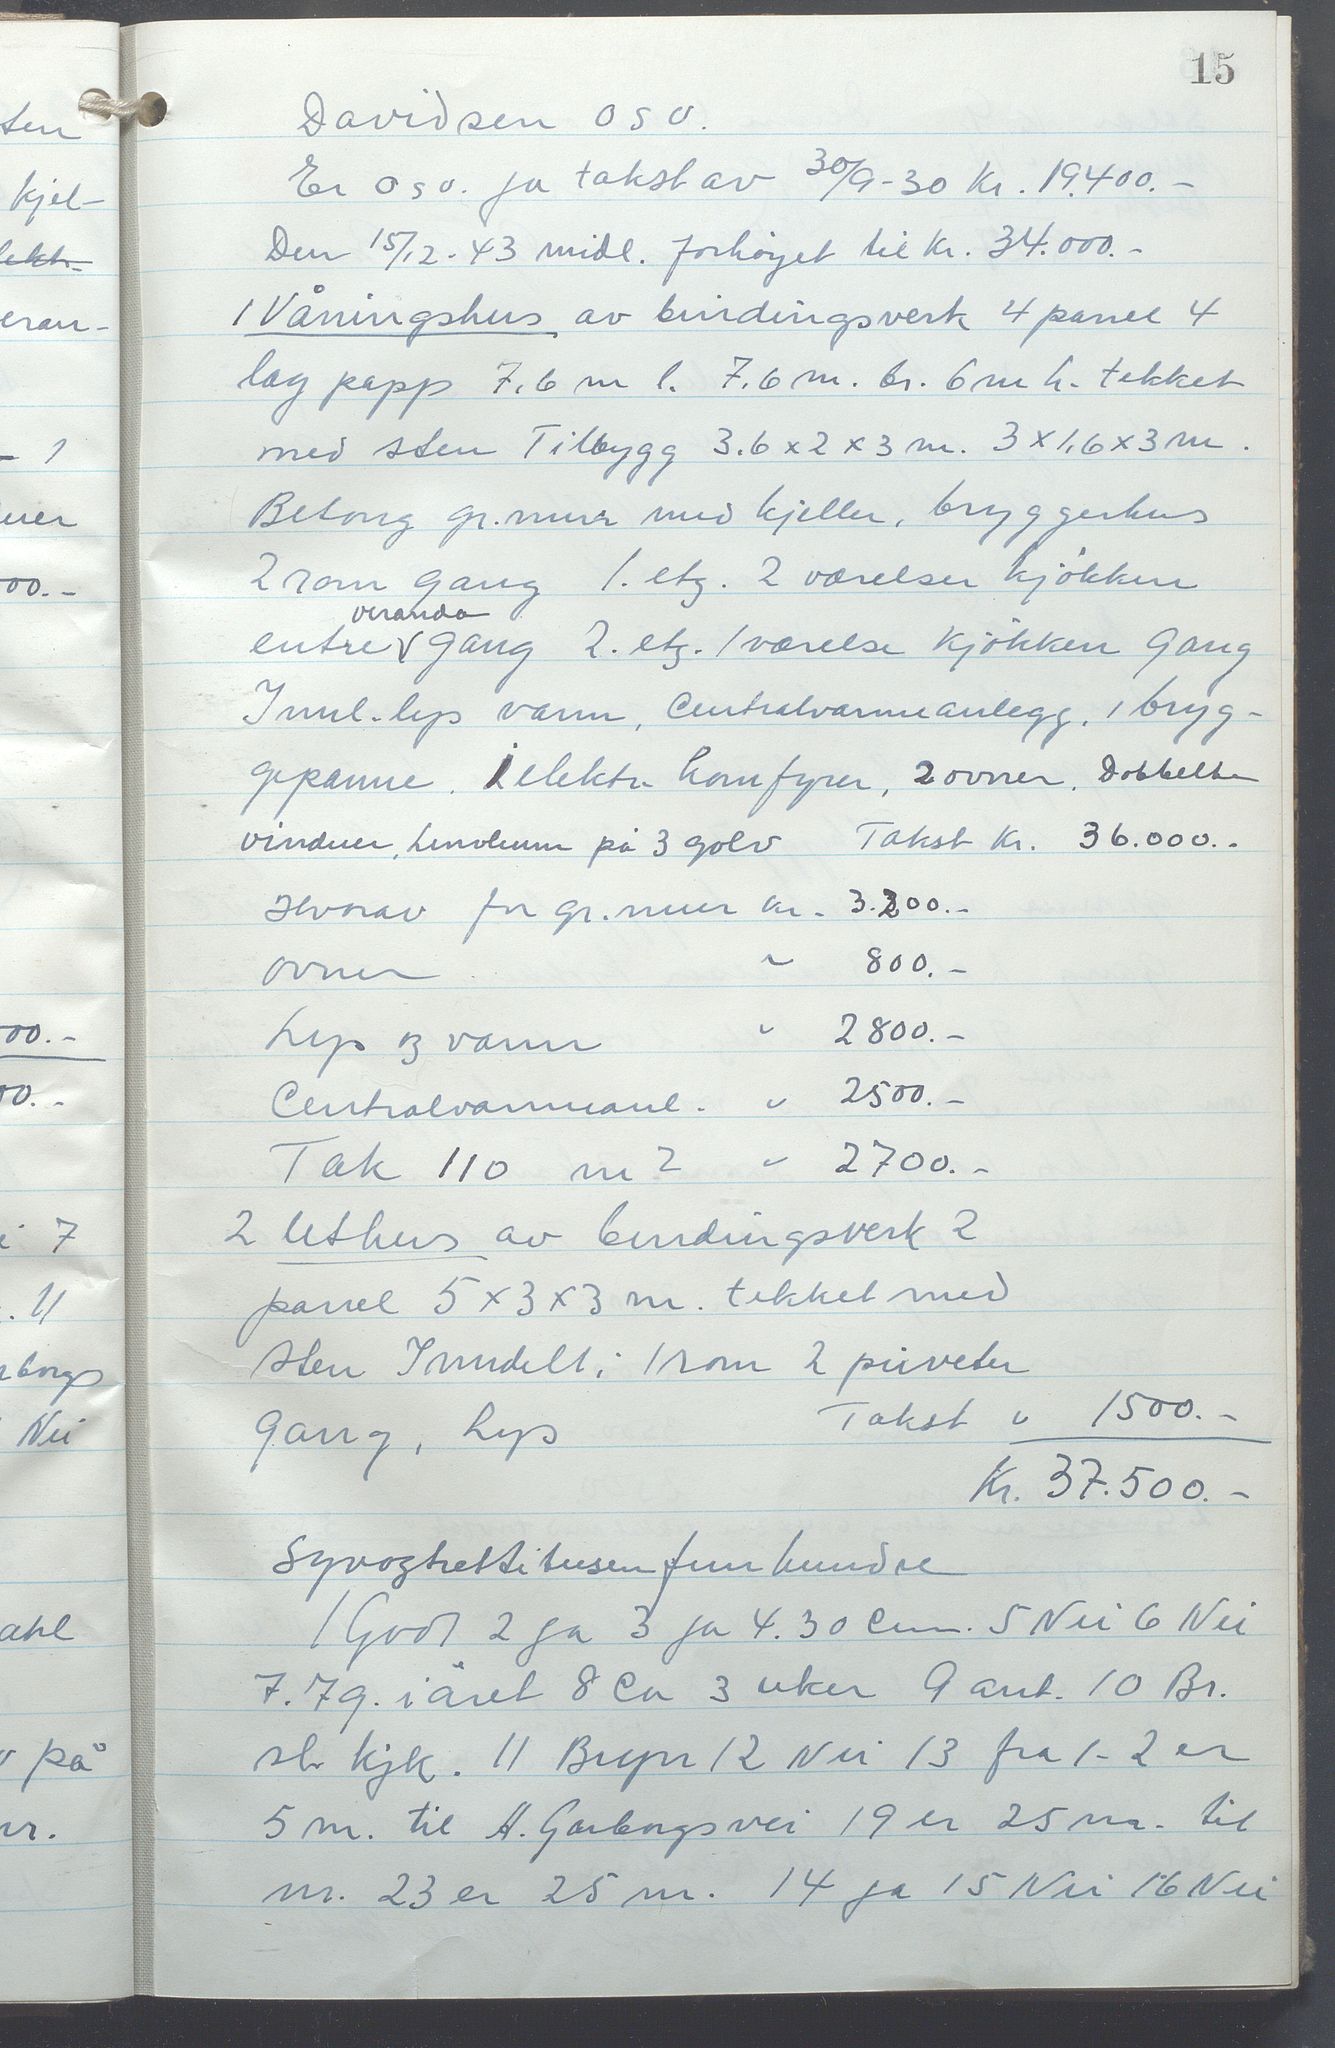 15
Davidsen o s v.
Er o s v. ja takst av 30/9-30 Kr. 19.400.-
Den 15/12-43 midl. forhøyet til kr. 34.000.-
1 Våningshus av bindingsverk 4 panel 4
lag papp 7,6 m l. 7,6 m. br. 6 m h. tekket
med sten Tilbygg 3.6 x 2 x 3 m. 3 x 1,6 x 3 m.
Betong gr.mur med kjeller, bryggerhus
2 rom gang 1. etg. 2 værelser kjökken
veranda
entre gang 2. etg. 1 værelse kjökken Gang
Innl. lys vann, Centralvarmeanlegg, 1 bryg-
gepanne. elektr. komfyrer, 2 ovner. Dobbelte
vinduer, Linoleum på 3 golv Takst Kr. 36.000.-
Hvorav for gr.mur kr. 3.200.-
ovner " 800.-
Lys og vann " 2800.-
Centralvarmeanl. " 2500.-
Tak 110 m2 " 2700.-
2 Uthus av bindingsverk 2
panel 5 x 3 x 3 m. tekket med
sten Inndelt i 1 rom 2 priveter
Gang, Lys Takst " 1500.-
Kr. 37.500.-
Syvogtrettitusenfemhundre
1 Godt 2 ja 3 ja 4. 30 Cm. 5 Nei 6 Nei
7. 7 g. i året 8 Ca 3 uker 9 ant. 10 Br.
sl. kjk. 11 12 Nei 13 fra 1-2 er
5 m. til A. Garborgsvei 19 er 25 m. til
nr. 23 er 25 m. 14 ja 15 Nei 16 Nei